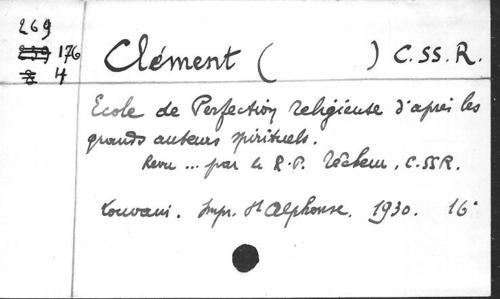 269
259 176
2 4
Clément ( ) C.SS.R.
Ecole de Perfection religieuse d'après les
grands auteurs spirituels.
Revu ... par le R.P. C.SSR.
Louvain. Impr. St Alphonse. 1930. 16°